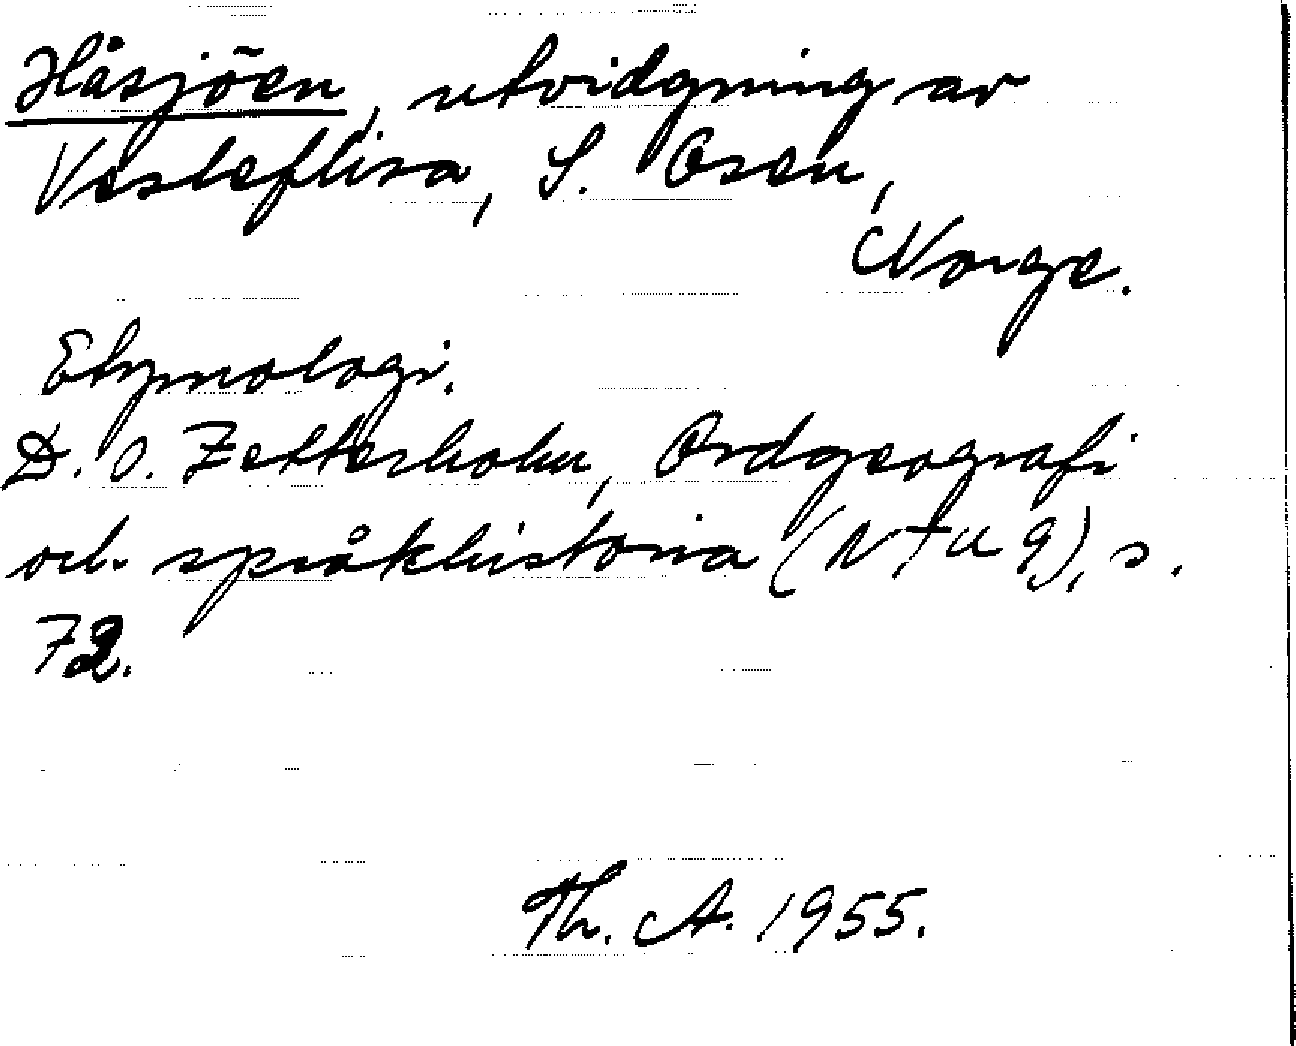 Håsjöen, utvidgning av
Vesleflisa, S. Osen,
Norge.
Etymologi.
D. O. Zetterholm, Ordgeografi
och språkhistoria (NTU 9), s.
72.
Th. A. 1955.